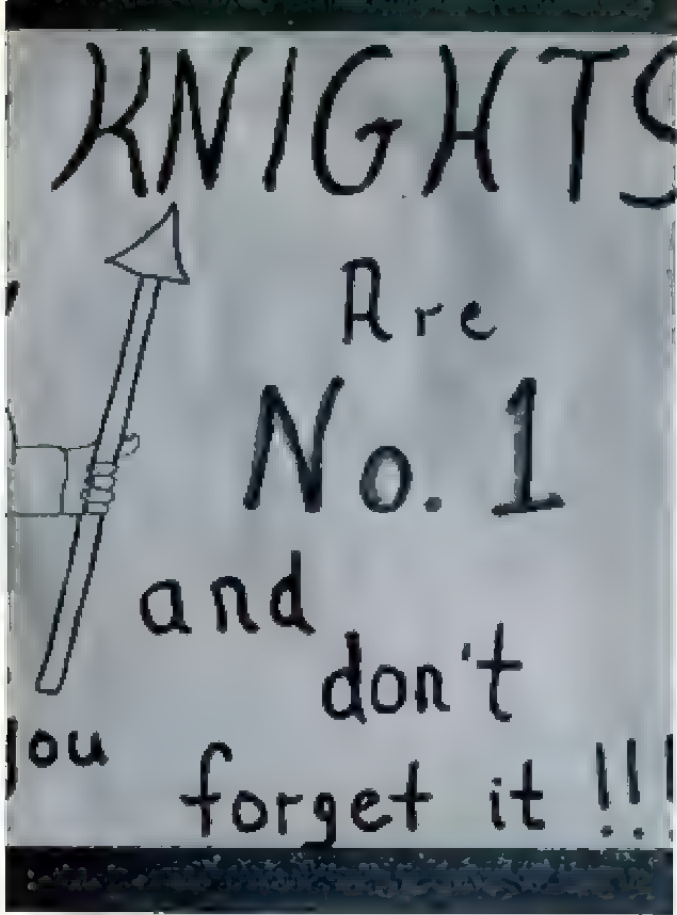 KNIGHTS
Are
No. 1
and
don't
you
forget it !!!